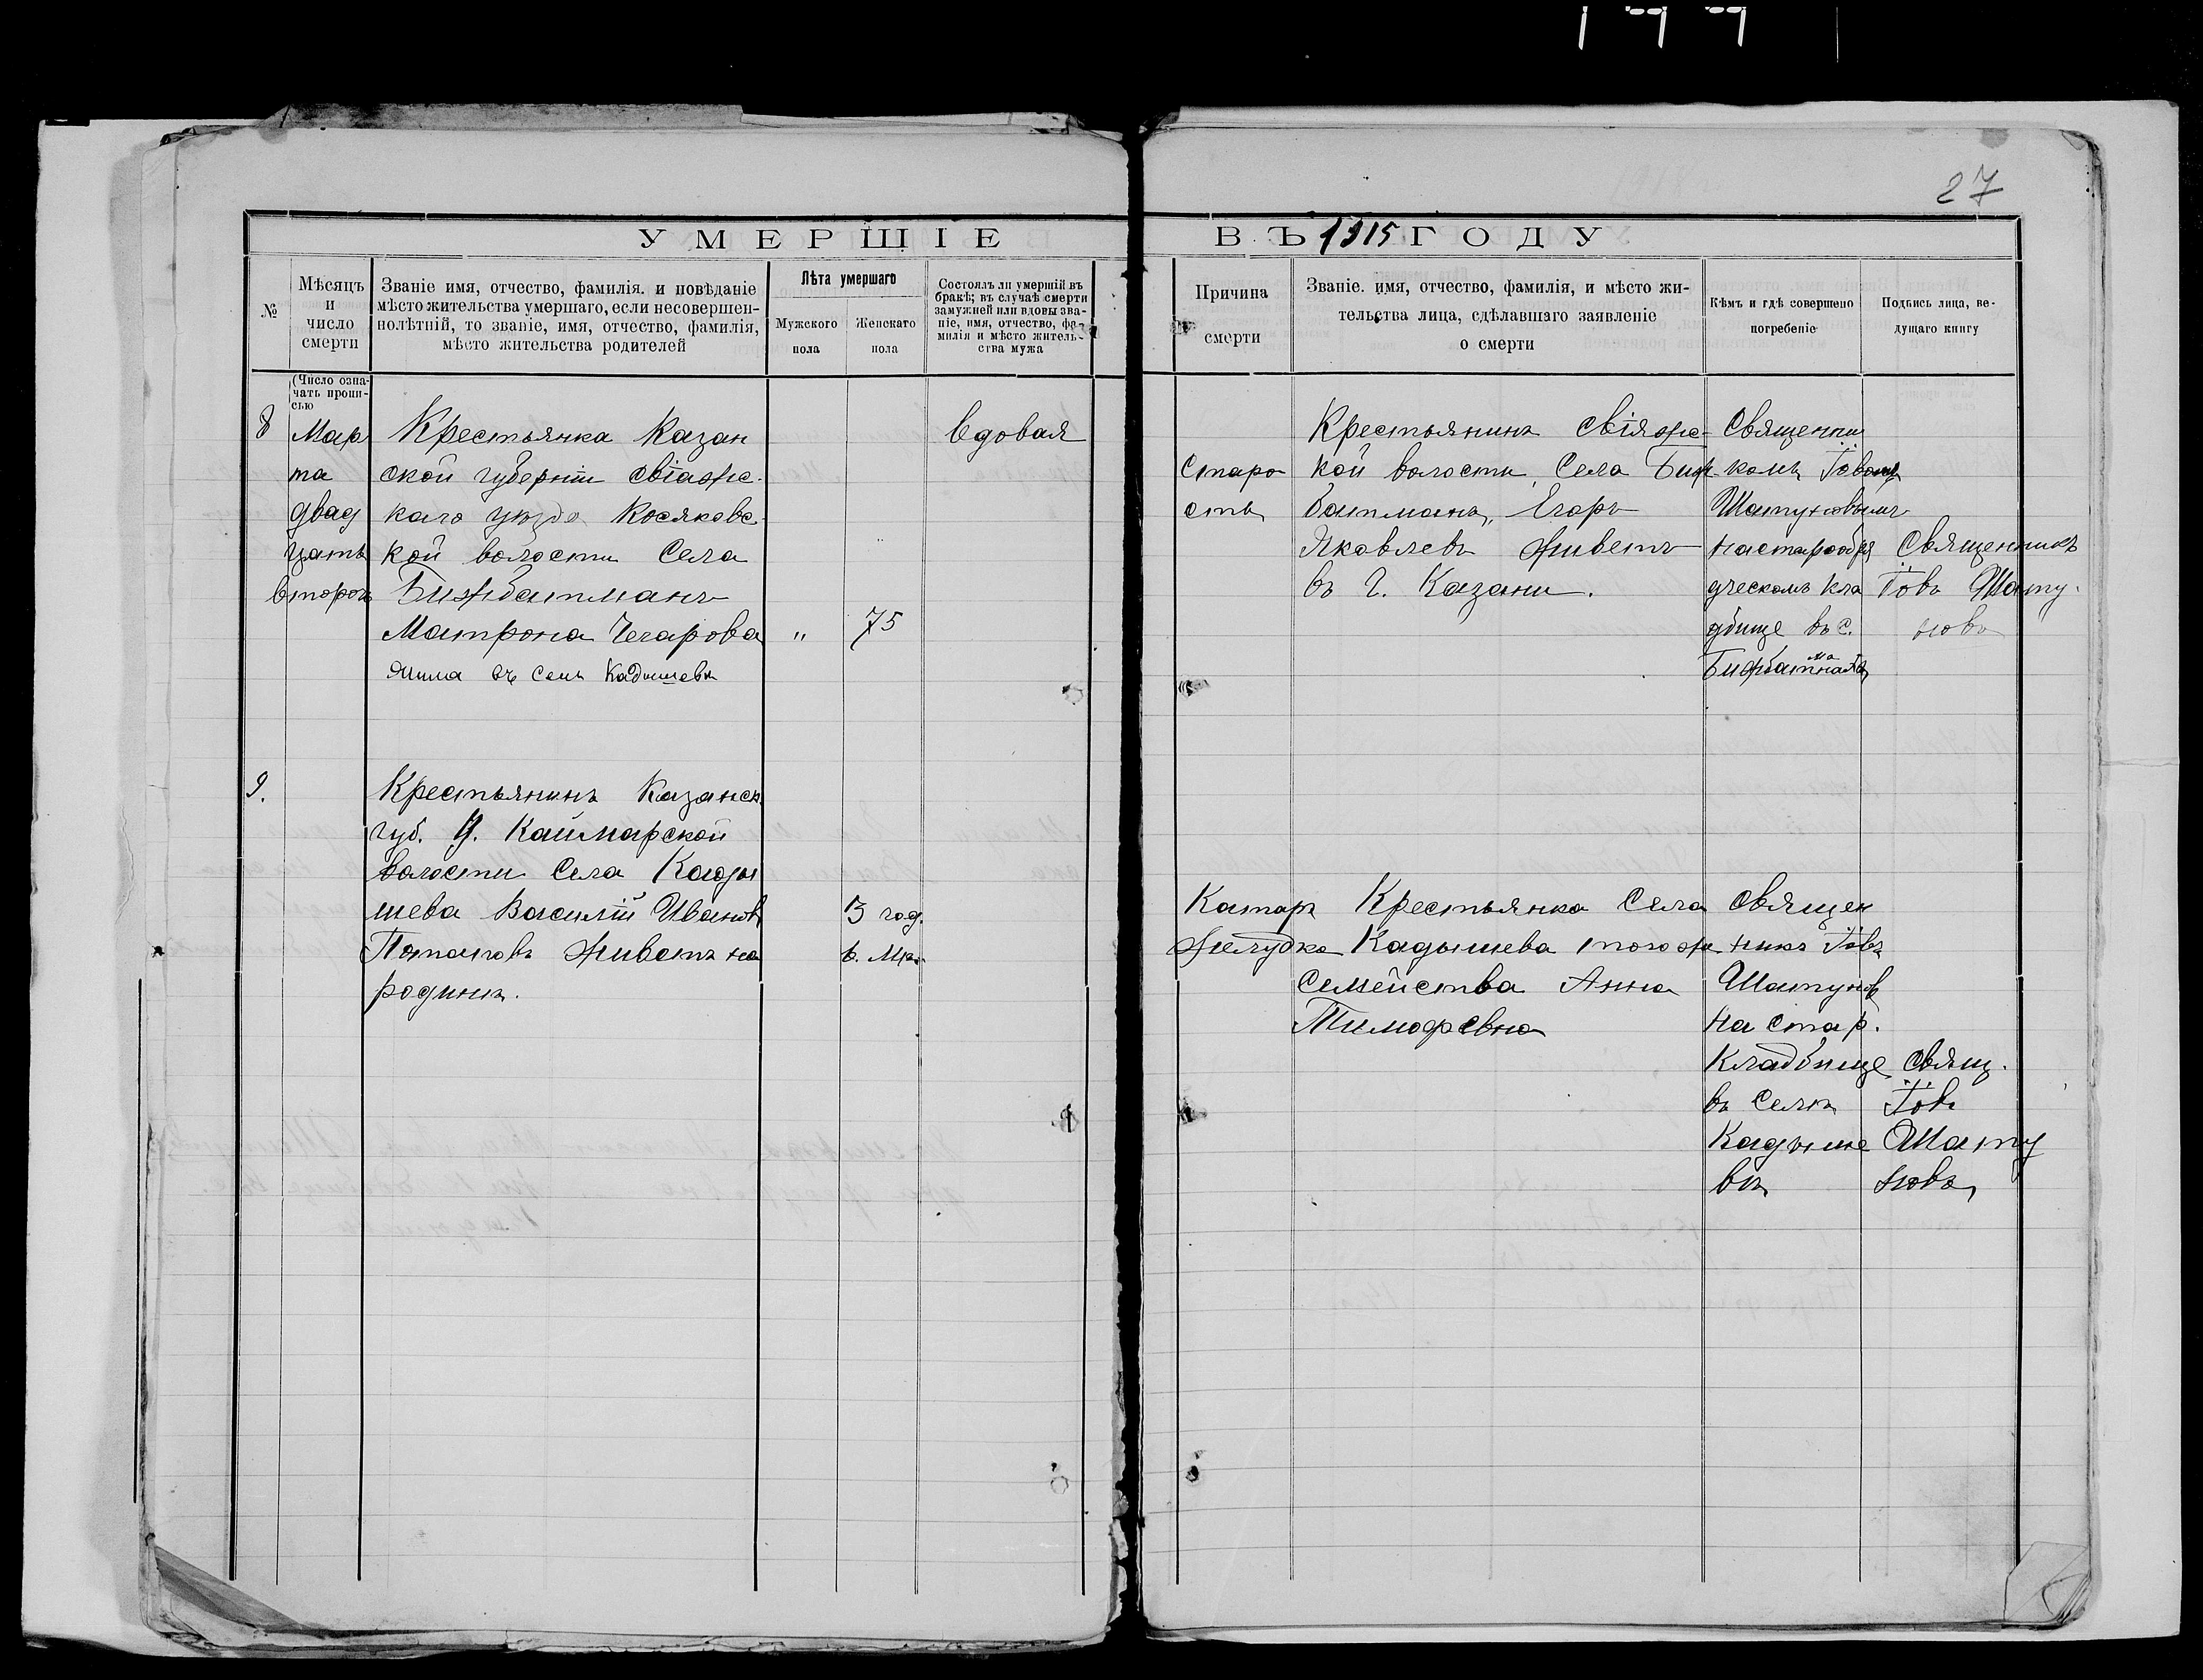 27
УМЕРШІЕ ВЪ 1915 ГОДУ
№
Мѣсяцъ
и
число
смерти
Званіе имя, отчество, фамилія. и повѣданіе
мѣсто жительства умершаго, если несовершен-
нолѣтній, то званіе, имя, отчество, фамилія,
мѣсто жительства родителей
Лѣта умершаго
Мужского
пола
Женскаго
пола
Состоялъ ли умершій въ
бракѣ; въ случаѣ смерти
замужней или вдовы зва-
ніе, имя, отчество, фа-
милія и мѣсто житель-
ства мужа
Причина
смерти
Званіе. имя, отчество, фамилія, и мѣсто жи-
тельства лица, сдѣлавшаго заявленіе
о смерти
Кѣмъ и гдѣ совершено
погребеніе
Подпись лица, ве-
дущаго книгу
(Число озна-
чать пропи-
сью
8
Мар
та
двад
цать
второго
Крестьянка Казан
ской губерніи свіяжс-
каго уѣзда Косяковс-
кой волости Села
Бижбатманъ
Матрона Чегарова
жила въ Селѣ Кадышевѣ
"
75
вдовая
Старо
сть
Крестьянинъ свіяжс-
кой волости, Села Биж-
батманъ, Егоръ
Яковлевъ живетъ
въ г. Казани.
Священни
комъ Іовомъ
Шатуновымъ
на старообря
дческомъ кла
дбище въ с.
Бижбатманахъ
Священникъ
Іовъ Шату-
новъ
9.
Крестьянинъ Казанск.
губ. У. Каймарской
волости Села Кады
шева Василій Ивановъ
Потаповъ живетъ на
родинѣ.
3 год.
6. Мѣ.
Катаръ
желудка
Крестьянка Села
Кадышева того ж
Семейства Анна
Тимофевна
Священ
никъ Іовъ
Шатунов
на стар.
Кладбище
въ Селѣ
Кадыше
вѣ
Свящ.
Іовъ
Шату
новъ